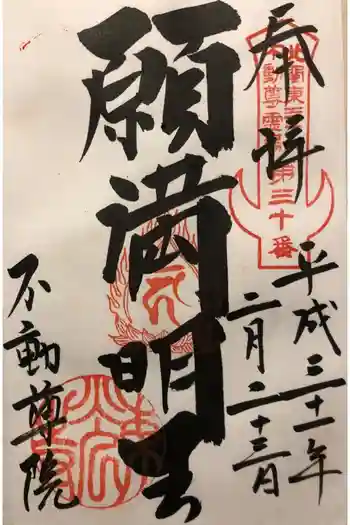 奉拝
北関東三十六
不動尊霊場第三十番
平成三十一年
二月二十三日
願満明王
不動尊院